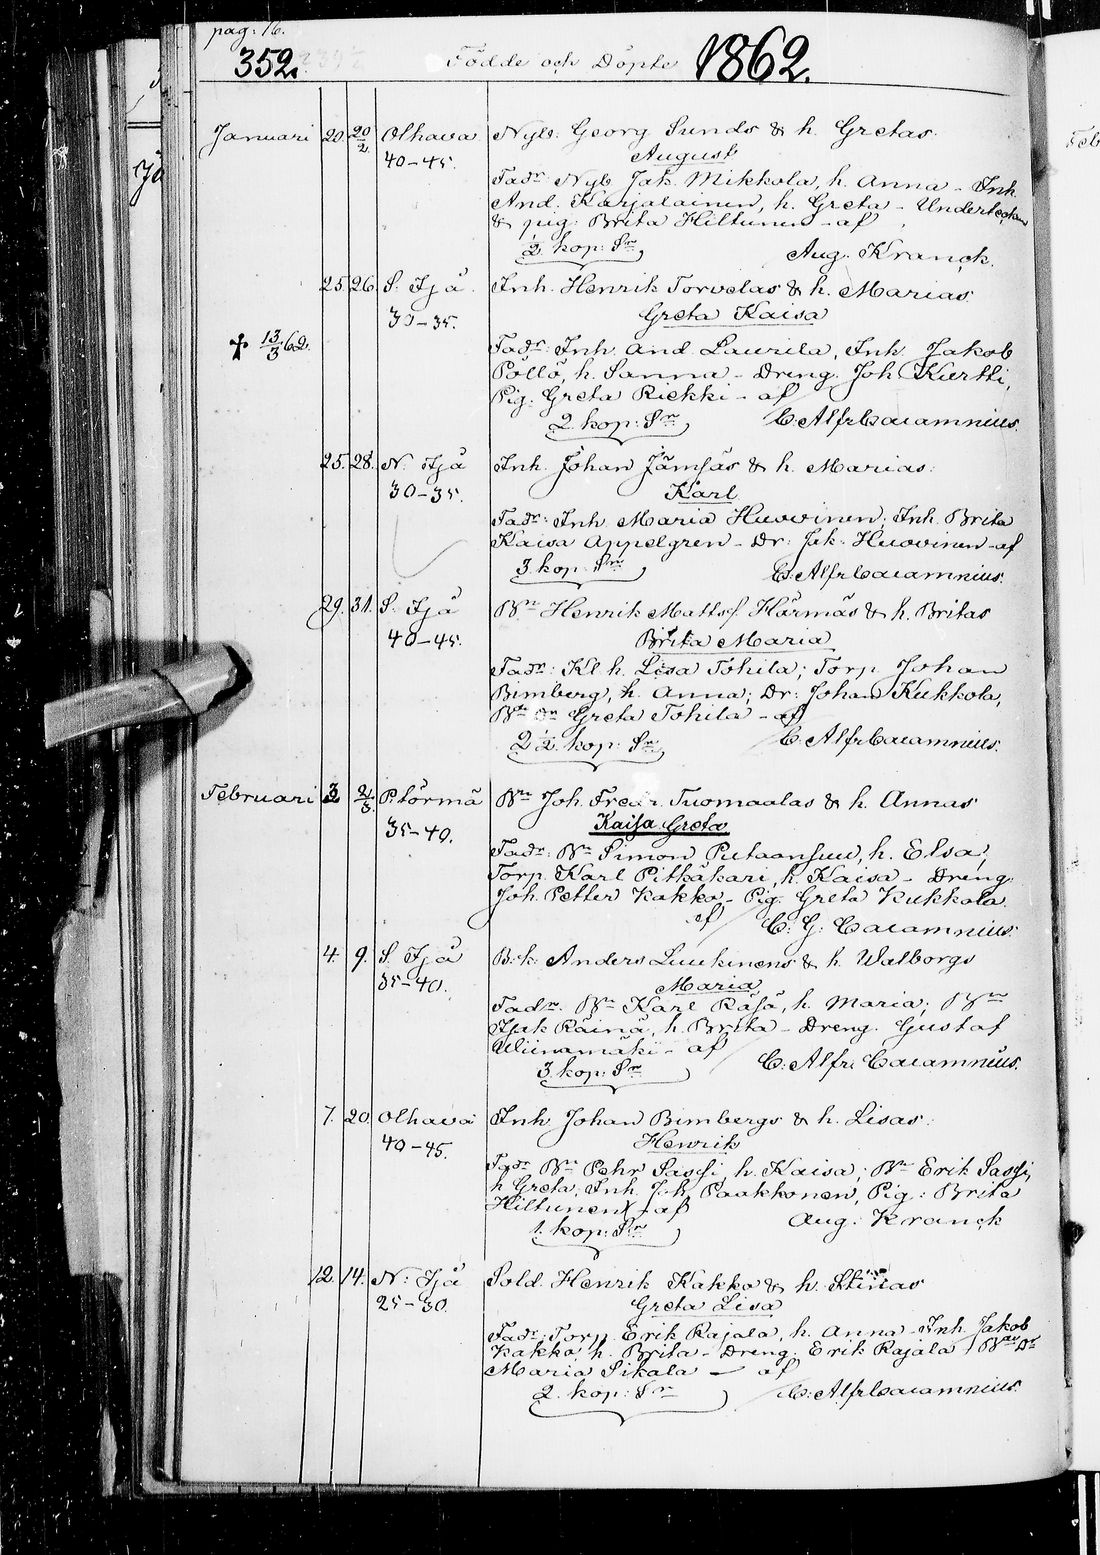 pag: 16.
352. Födde och Döpte 1862.
Januari 20. 20/2 Olhava Nyb: Georg Sunds & h. Gretas:
40-45. August
Fadr: Nyb. Jak. Mikkola, h. Anna - Inh.
And. Karjalainen, h. Greta - Undertecknn
& pig: Brita Hiltunen - af
1/2 kop: Sr Aug. Kranck.
25. 26. S. Ijå Inh. Henrik Torvelas & h. Marias.
30-35. Greta Kaisa
† 13/3 62. Fadr: Inh. And. Laurila, Inh. Jakob
Pöllö, h. Sanna - Dreng. Joh. Kurtti,
Pig. Greta Riekki - af
2 kop: Sr C. Alfr Cajamnius.
25. 28. N. Ijå Inh. Johan Jämsäs & h. Marias:
30-35. Karl
Fadr: Inh. Maria Huovinen; Inh. Brita
Kaisa Appelgren - Dr: Jak. Huovinen - af
3 kop: Sr C. Alfr Cajamnius.
29. 31. S. Ijå Bn Henrik Mattsf. Härmäs & h. Britas
40-45. Brita Maria
Fadr: Kl. h. Lisa Tohila; Torp. Johan
Bimberg, h. Anna; Dr: Johan Kukkola,
Greta Tohila - af
2 1/2 kop: Sr C. Alfr Cajamnius.
Februari 3 2/3 P. törmä Bn Joh. Fredr. Tuomaalas & h. Annas
35-40. Kaisa Greta
Fadr: Bn Simon Putaansuu, h. Elsa,
Torp. Karl Pitkäkari, h. Kaisa - Dreng.
Joh. Petter Kakko - Pig. Greta Kukkola.
af C: G: Cajamnius.
4. 9. S. Ijå B.k: Anders Luukinens & h. Walborgs
35-40. Maria
Fadr. Bn Karl Räsä, h. Maria; Bn
Isak Räinä, h. Brita - Dreng. Gustaf
Wiinamäki - af
3. kop: Sr C: Alfr. Cajamnius.
7. 20. Olhava Inh. Johan Bimbergs & h. Lisas:
40-45. Henrik
Fadr Bn Pehr Sassi h. Kaisa; Bn Erik Sassi,
h Greta, Inh. Joh. Paakkonen, Pig: Brita
Hiltunen - af
1. kop: Sr Aug: Kranck
12. 14. N: Ijå Sold. Henrik Kakko & h. Stinas
25-30. Greta Lisa
Fadr: Torp. Erik Rajala, h. Anna - Inh. Jakob
Kakko, h. Brita - Dreng. Erik Rajala, Bns Dr
Maria Sikala - af
2. kop: Sr C. Alfr Cajamnius.